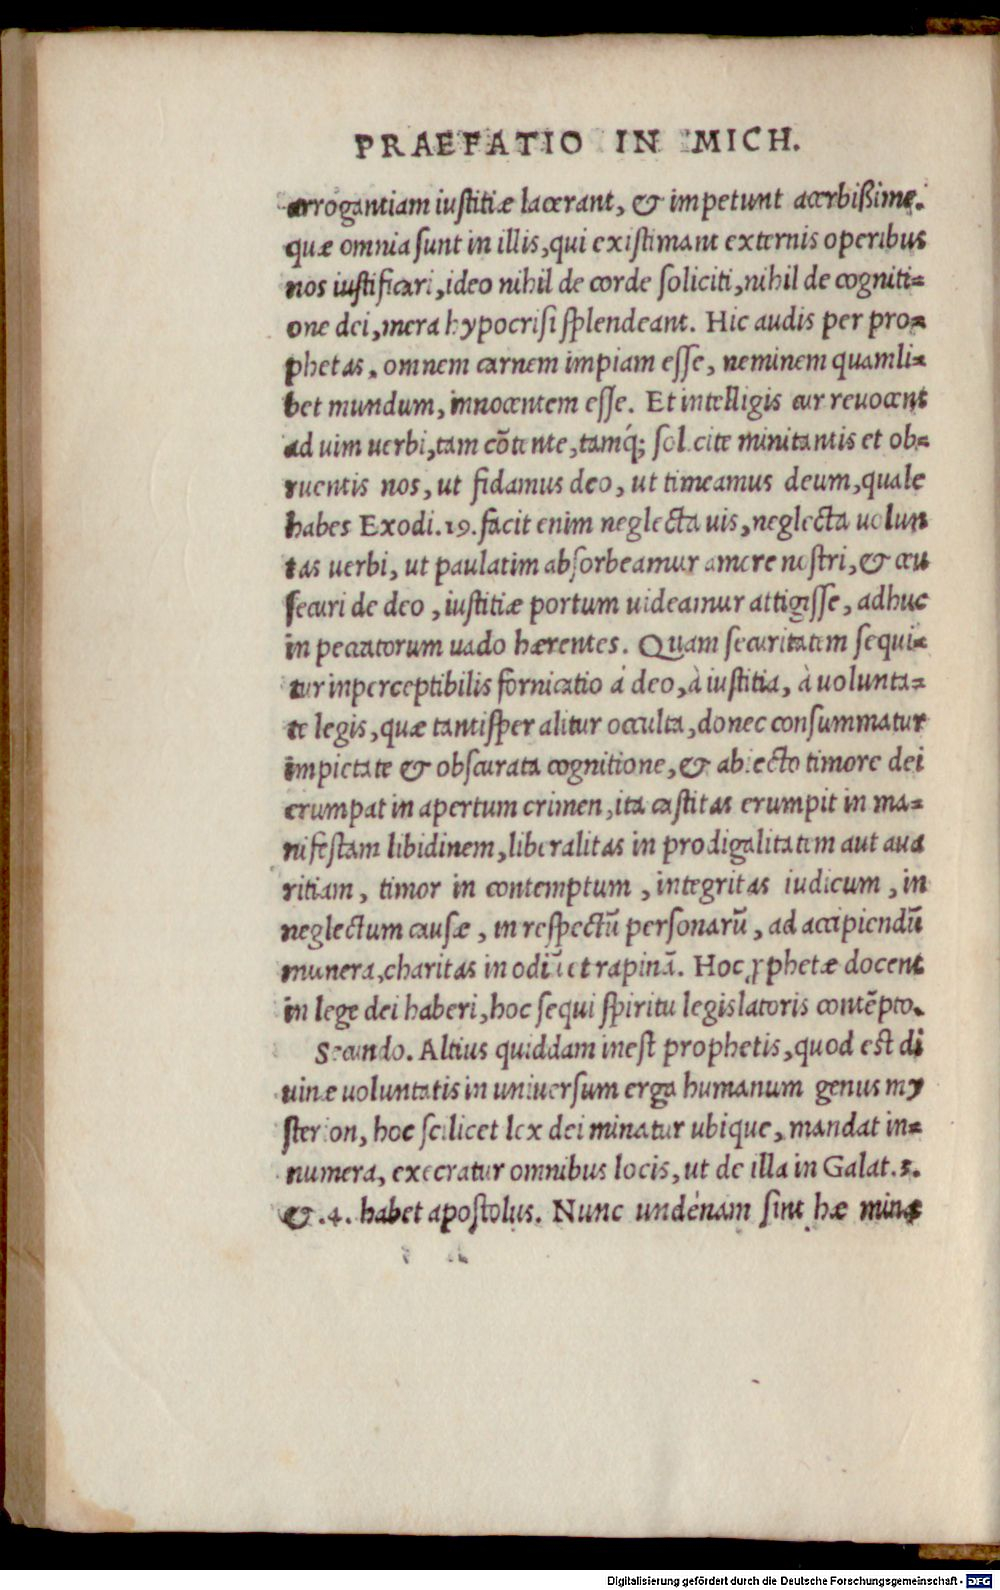 PRAEFATIO IN MICH.
arrogantiam iustitiæ lacerant, & impetunt acerbißime.
quæ omnia sunt in illis, qui existimant externis operibus
nos iustificari, ideo nihil de corde soliciti, nihil de cogniti=
one dei, mera hypocrisi splendeant. Hic audis per pro=
phetas, omnem carnem impiam esse, neminem quamli=
bet mundum, innocentem esse. Et intelligis cur reuocent
ad uim uerbi, tam cõtente, tamq́; solicite minitantis et ob=
ruentis nos, ut fidamus deo, ut timeamus deum, quale
habes Exodi. 19. facit enim neglecta uis, neglecta uolun
tas uerbi, ut paulatim absorbeamur amore nostri, & ceu
securi de deo, iustitiæ portum uideamur attigisse, adhuc
in peccatorum uado hærentes. Quam securitatem sequi=
tur inperceptibilis fornicatio á deo, à iustitia, à volunta=
te legis, quæ tantisper alitur occulta, donec consummatur
impietate & obscurata cognitione, & abiecto timore dei
erumpat in apertum crimen, ita castitas erumpit in ma=
nifestam libidinem, liberalitas in prodigalitatem aut aua
ritiam, timor in contemptum, integritas iudicum, in
neglectum causæ, in respectũ personarũ, ad accipiendũ
munera, charitas in odiũ et rapinã. Hoc ꝓphetæ docent
in lege dei haberi, hoc sequi spiritu legislatoris contẽpto.
Secundo. Altius quiddam inest prophetis, quod est di
uinæ uoluntatis in uniuersum erga humanum genus my
sterion, hoc scilicet lex dei minatur ubique, mandat in=
numera, execratur omnibus locis, ut de illa in Galat. 3.
&. 4. habet apostolus. Nunc undénam sint hæ minæ
Digitalisierung gefördert durch die Deutsche Forschungsgemeinschaft - DFG